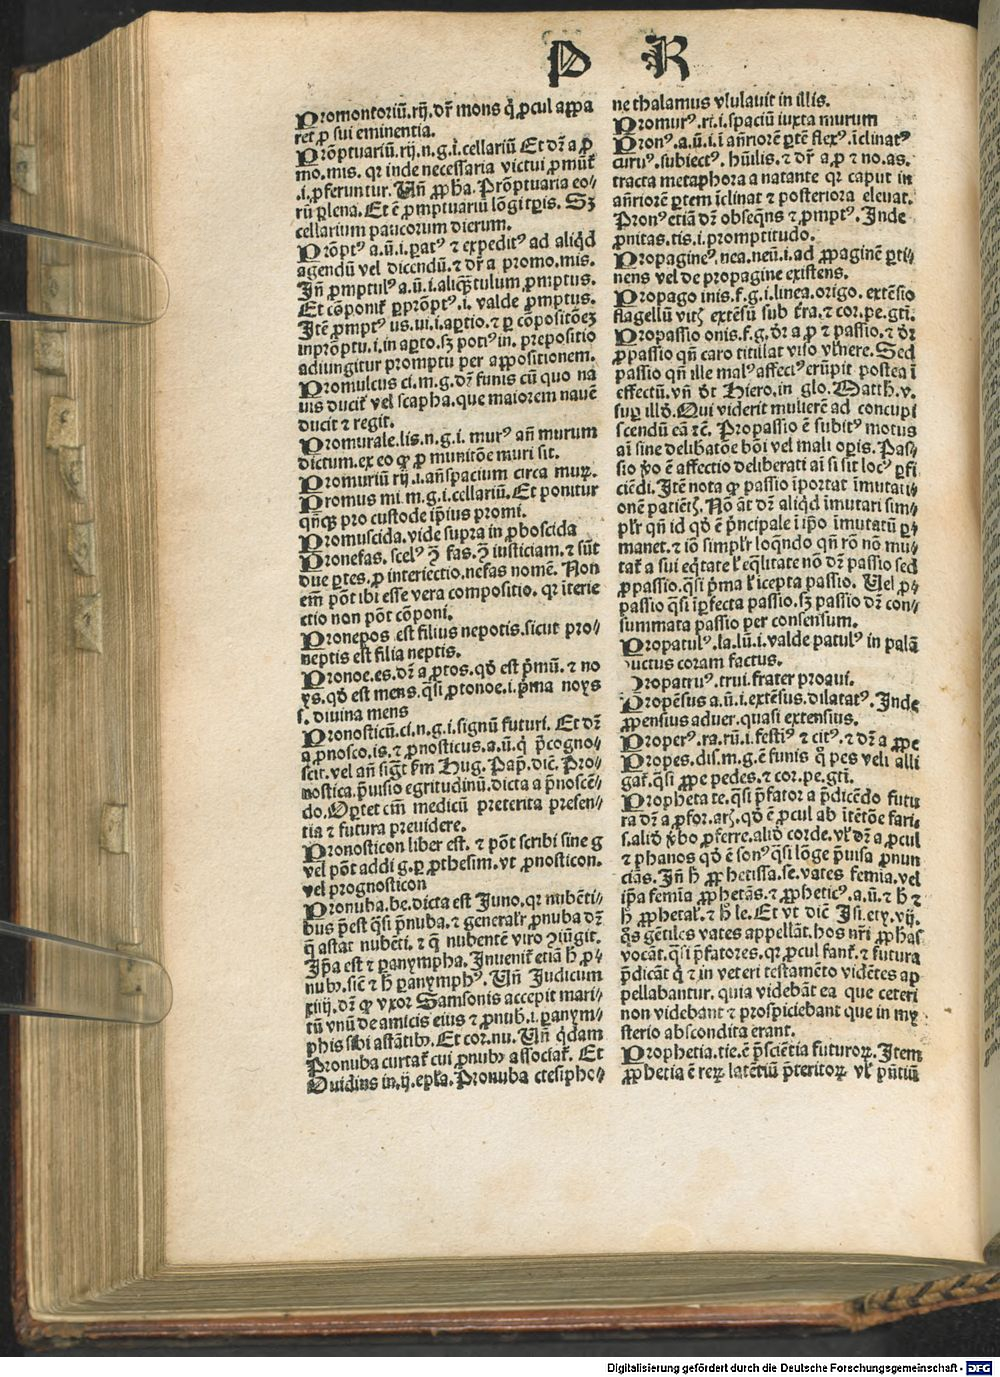 P R
Promontoriū.rij.dr̄ mons q̇ ꝓcul appa
ret ꝓ sui eminentia.
Prōptuariū.rij.n.g.i.cellariū Et dr̄ a ꝓ
mo.mis. qr inde necessaria victui ꝓmūt̄
.i.ꝓferuntur. Un̄ ꝓpha. Prōptuaria eo-
rū plena. Et ē ꝓmptuariū lōgi tꝑis. Sꝫ
cellarium paucorum dierum.
Prōptꝰ a.ū.i.ꝑatꝰ ⁊ expeditꝰ ad aliqd
agendū vel dicendū.⁊ dr̄ a promo.mis.
Jn̄ ꝓmptulꝰ a.ū.i.aliqꝫtulum ꝓmptus.
Et cōponit̄ ꝑprōptꝰ.i. valde ꝓmptus.
Jtē ꝓmptꝰ us.ui.i.aꝑtio.⁊ ꝑ cōpositōeꝫ
inprōptu.i.in aꝑto.sꝫ potiꝰ in. prepositio
adiungitur promptu per appositionem.
Promulcus ci.m.g.dr̄ funis cū quo na
uis ducit̄ vel scapha.que maiorem nauē
ducit ⁊ regit.
Promurale.lis.n.g.i. murꝰ an̄ murum
dictum.ex eo ꝙ ꝓ munitōe muri sit.
Promuriū rij.i.an̄spacium circa muꝝ.
Promus mi.m.g.i.cellariū.Et ponitur
qn̄qꝫ pro custode ip̄ius promi.
Promuscida.vide supra in ꝓboscida
Pronefas.scelꝰ ꝯ̄ fas.ꝯ̄ iusticiam.⁊ sūt
due ꝑtes.ꝓ interiectio.nefas nomē. Non
em̄ pōt ibi esse vera compositio. qr īterie
ctio non pōt cōponi.
Pronepos est filius nepotis.sicut pro-
neptis est filia neptis.
Pronoe.es.dr̄ a ꝓtos.qď est p̄mū.⁊ no
ys.qď est mens.qsi ꝓtonoe.i.p̄ma noys
s. diuina mens
Pronosticū.ci.n.g.i.signū futuri. Et dr̄
a ꝓnosco.is.⁊ ꝓnosticus.a.ū.q̇ p̄cogno-
scit.vel an̄ sigt̄ ẜm Hug. Pap̄.dic̄. Pro-
nostica.p̄uisio egritudinū.dicta a p̄noscē-
do.Oꝑtet em̄ medicū preterita presen-
tia ⁊ futura preuidere.
Pronosticon liber est. ⁊ pōt scribi sine g
vel pōt addi g.ꝑ ꝓthesim.vt ꝓnosticon.
vel prognosticon
Pronuba.be.dicta est Juno.qr nubēti-
bus p̄est qsi p̄nuba.⁊ general̓r ꝓnuba dr̄
q̄ astat nubēti.⁊ q̄ nubentē viro ꝯiūgit.
Jp̄a est ⁊ ꝑanympha.Jnuenit̄ etiā h̄ ꝓ-
nubꝰ.sic̄ ⁊ h̄ ꝑanymphꝰ. Un̄ Judicum
xiiij.dr̄ ꝙ vxor Samsonis accepit mari-
tū vnū de amicis eius ⁊ ꝓnub̄.i.ꝑanym-
phis sibi astātibꝰ.Et cor.nu. Un̄ qdam
Pronuba curtat̄ cui ꝓnubꝰ associat̄. Et
Ouidius in.ij.epl̄a.Pronuba ctesipho-
ne thalamus vlulauit in illis.
Promurꝰ.ri.i.spaciū iuxta murum
Pronꝰ.a.ū.i.ī an̄riorē ꝑtē flexꝰ.īclinatꝰ
curuꝰ.subiectꝰ. hūilis.⁊ dr̄ a ꝓ ⁊ no.as.
tracta metaphora a natante qr caput in
an̄riorē ꝑtem īclinat ⁊ posteriora eleuat.
Pronꝰ etiā dr̄ obseqns ⁊ ꝓmptꝰ. Jnde
ꝓnitas.tis.i.promptitudo.
Propagineꝰ.nea.neū.i.ad ꝓpaginē ꝑti-
nens vel de propagine existens.
Propago inis.f.g.i.linea.origo. extēsio
flagellū vitꝭ extēsū sub t̄ra.⁊ cor.pe.gt̄i.
Propassio onis.f.g.dr̄ a ꝓ ⁊ passio.⁊ dr̄
ꝓpassio qn̄ caro titillat viso vl̓nere. Sed
passio qn̄ ille malꝰ affectꝰ erūpit postea ī
effectū.vn̄ dt̄ Hiero.in glo. Matth.v.
suꝑ illď.Qui viderit mulierē ad concupi
scendū eā ⁊c̄. Propassio ē subitꝰ motus
ai sine delibatōe boi vel mali oꝑis. Pas-
sio ꝟo ē affectio deliberati ai si sit locꝰ ꝑfi
ciēdi. Jtē nota ꝙ passio īportat īmutati-
onē patiētꝭ. Nō āt dr̄ aliqd īmutari sim-
pl̓r qn̄ id qď ē p̄ncipale ī ip̄o īmutatū ꝑ-
manet.⁊ iō simpl̓r loqndo qn̄ rō nō mu-
tat̄ a sui eqtate l̓ eqlitate nō dr̄ passio sed
ꝓpassio.qsi p̄ma l̓ īcepta passio. Uel ꝓ-
passio qsi īꝑfecta passio.sꝫ passio dr̄ con-
summata passio per consensum.
Propatulꝰ.la.lū.i.valde patulꝰ in palā
ductus coram factus.
Propatruꝰ.trui.frater proaui.
Propēsus a.ū.i.extēsus.dilatatꝰ. Jnde
ꝓpensius aduer.quasi extensius.
Properꝰ.ra.rū.i.festiꝰ ⁊ citꝰ.⁊ dr̄ a ꝓpe
Propes.dis.m.g.ē funis q̊ pes veli alli
gat̄.qsi ꝓpe pedes.⁊ cor.pe.gt̄i.
Propheta te.qsi p̄fator a p̄dicēdo futu
ra dr̄ a ꝓfor.arꝭ.qď ē ꝓcul ab ītētōe fari
s.aliď ꝟbo ꝓferre.aliď corde.vl̓ dr̄ a ꝓcul
⁊ phanos qď ē sonꝰ qsi lōge p̄uisa ꝓnun
cians. Jn̄ h̄ ꝓphetissa.se.vates femīa.vel
ip̄a femīa ꝓphetās.⁊ ꝓpheticꝰ.a.ū.⁊ h̄ ⁊
h̄ ꝓphetal̓.⁊ h̄ le.Et vt dic̄ Jsi.ety.vij.
q̊s gētiles vates appellāt.hos nr̄i ꝓphas
vocāt.qsi p̄fatores.qr ꝓcul fant̄.⁊ futura
p̄dicāt q̇ ⁊ in veteri testamēto vidētes ap
pellabantur. quia videbāt ea que ceteri
non videbant ⁊ prospiciebant que in my
sterio abscondita erant.
Prophetia.tie.ē p̄sciētia futuroꝝ. Jtem
ꝓphetia ē reꝝ latētiū p̄teritoꝝ vl̓ p̄ntiū
Digitalisierung gefördert durch die Deutsche Forschungsgemeinschaft - DFG